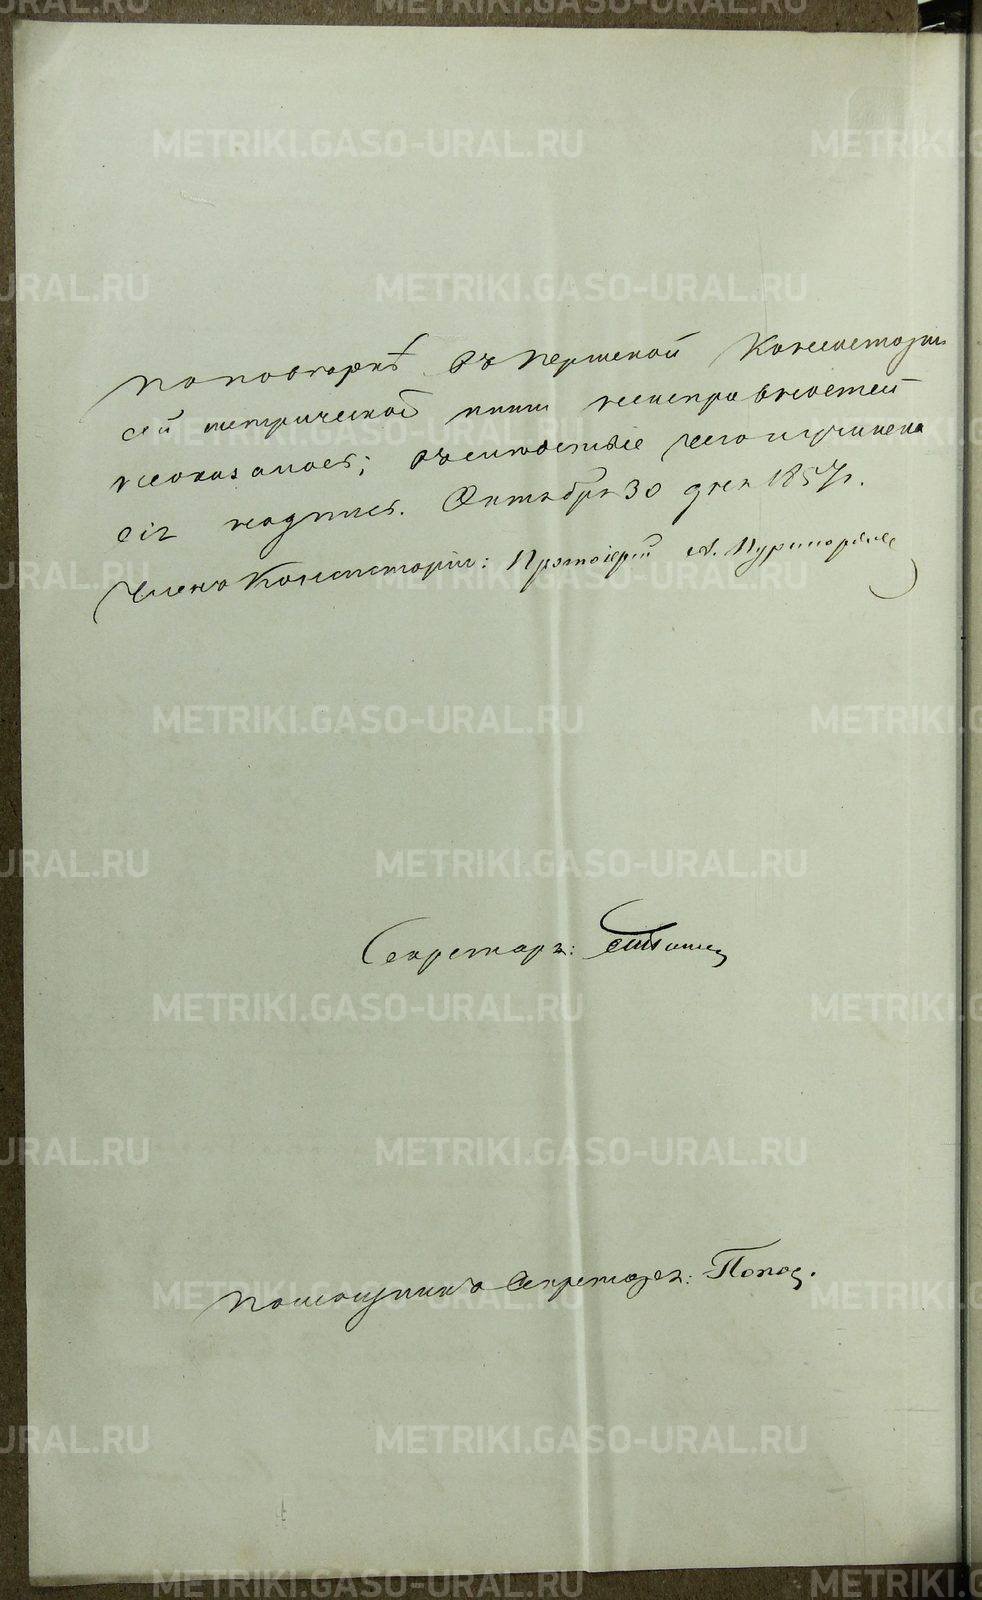 По поверкѣ въ Пермской Консисторіи
сей метрической книги неисправностей
неоказалось; въ слѣдствіе чего и учинена
сія надпись. Октября 30 дня 1857 г.
Членъ Консисторіи: Протоіерей А.
Секретарь:
Помощникъ Секретаря: Попов.
METRIKI.GASO-URAL.RU